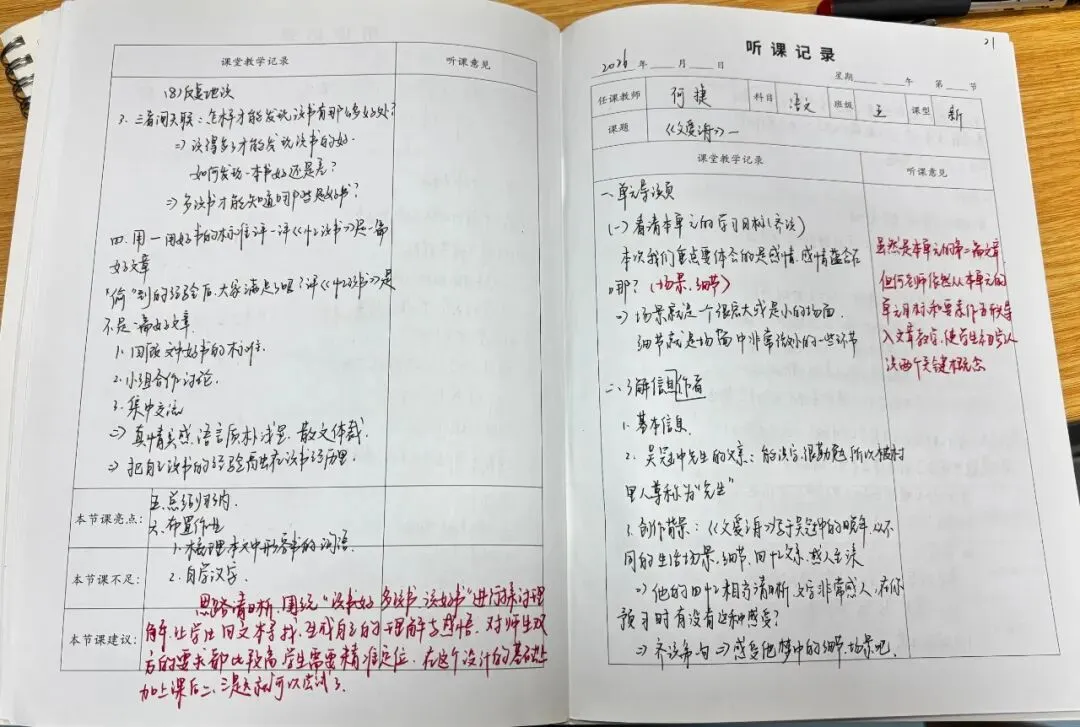 课堂教学记录
听课意见
(8)反复理读
3. 三看阅关联：怎样才能发现读书有那么多好处？
⇒ 读得多了才能发现读书的好.
如何发现一本书好还是差？
⇒ 多读书才能知道哪些是好书？
四. 用一用好书的标准评一评《忆读书》是一篇
好文章
"偷"到的经验后，大家满足了吧？评《忆读书》是
不是一篇好文章
1. 回顾文中好书的标准.
2. 小组合作讨论.
3. 集中交流
⇒ 真情实感，语言质朴浅显. 散文体裁.
⇒ 把自己读书的经验藏在读书经历里.
本节课亮点：
五. 总结归纳.
六. 布置作业
1. 梳理本文中形容书的词语.
本节课不足：
2. 自学汉字.
思路清晰，围绕"读书好 多读书 读好书"进行探讨理
本节课建议：
解，让学生回文本寻找，生成自己的理解与感悟. 对师生双
方的要求都比较高，学生需要精准定位. 在这个设计的基础上
加上课后二、三题这就可以尝试了.
21
听课记录
2026 年 月 日
星期 午 第 节
任课教师 何捷 科目 语文 班级 五 课型 新
课题 《父爱之舟》一
课堂教学记录
听课意见
一. 单元导读页
(一) 看清本单元的学习目标(齐读)
本次我们重点要体会的是感情，感情蕴含在
哪？(场景、细节)
⇒ 场景就是一个很宏大或是小的场面.
细节就是场面中非常微妙的一些环节
虽然是本单元的第二篇文章
但何老师依然从本单元的
单元目标和要素作为抓手导
入文章教学，使学生初步认
识两个关键概念
二、了解信息作者
1. 基本信息.
2. 吴冠中先生的父亲：能识字，很勤勉，所以被村
里人尊称为"先生"
3. 创作背景：《父爱之舟》写于吴冠中的晚年，从不
同的生活场景、细节，回忆父亲，感人至深
⇒ 他的回忆相当清晰，文字非常感人，在你
预习时有没有这种感受？
⇒ 齐读第一句 ⇒ 感受他梦中的细节、场景吧.